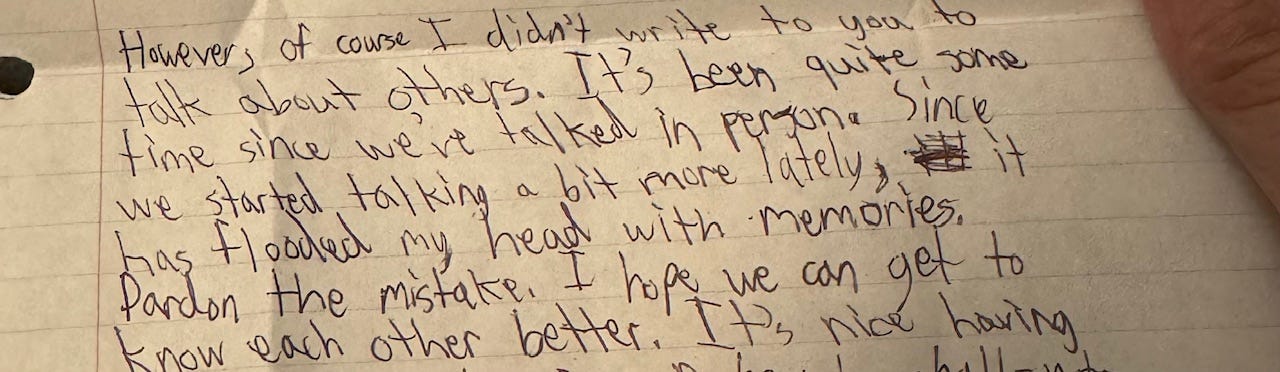 However, of course I didn't write to you to
talk about others. It's been quite some
time since we've talked in person. Since
we started talking a bit more lately, it
has flooded my head with memories.
Pardon the mistake. I hope we can get to
know each other better. It's nice having